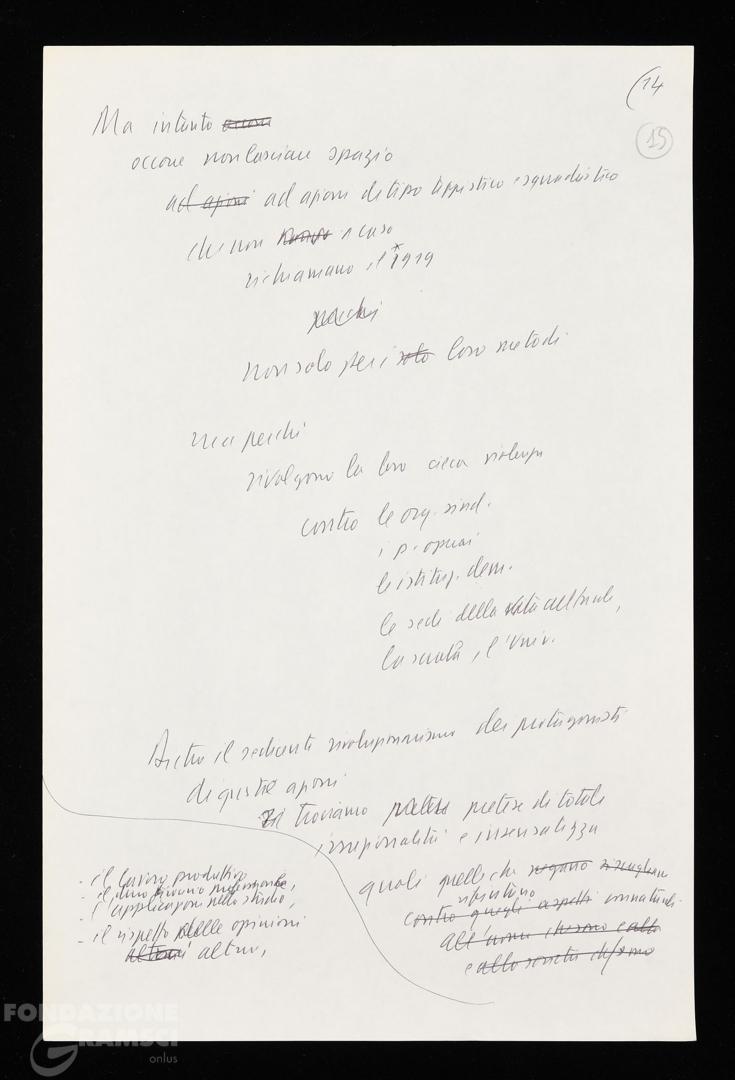 14
15
Ma intanto
occorre non lasciare spazio
ad azioni ad azioni di tipo teppistico e squadristico
che non a caso
richiamano il 1919
perché
non solo per i solo loro metodi
ma perché
rivolgono la loro cieca violenza
contro le org. sind.
i p. operai
le istituz. dem.
le sedi della vita culturale,
la scuola, l'Univ.
Dietro il sedicente rivoluzionarismo dei protagonisti
di queste azioni
troviamo pretese pretese di totale
irrazionalità e insensatezza
quali quelle che negano
rifiutano
contro quegli aspetti connaturali
all'uomo
e alla società
- il lavoro produttivo
- il
l'applicazione nello studio,
- il rispetto delle opinioni
altrui altrui,
FONDAZIONE
GRAMSCI
onlus